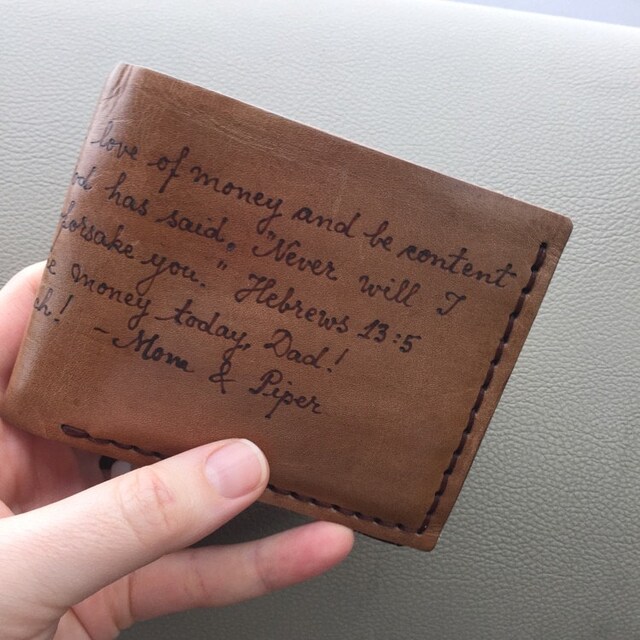 love of money and be content
has said, "Never will I
forsake you." Hebrews 13:5
money today, Dad!
- Mom & Piper